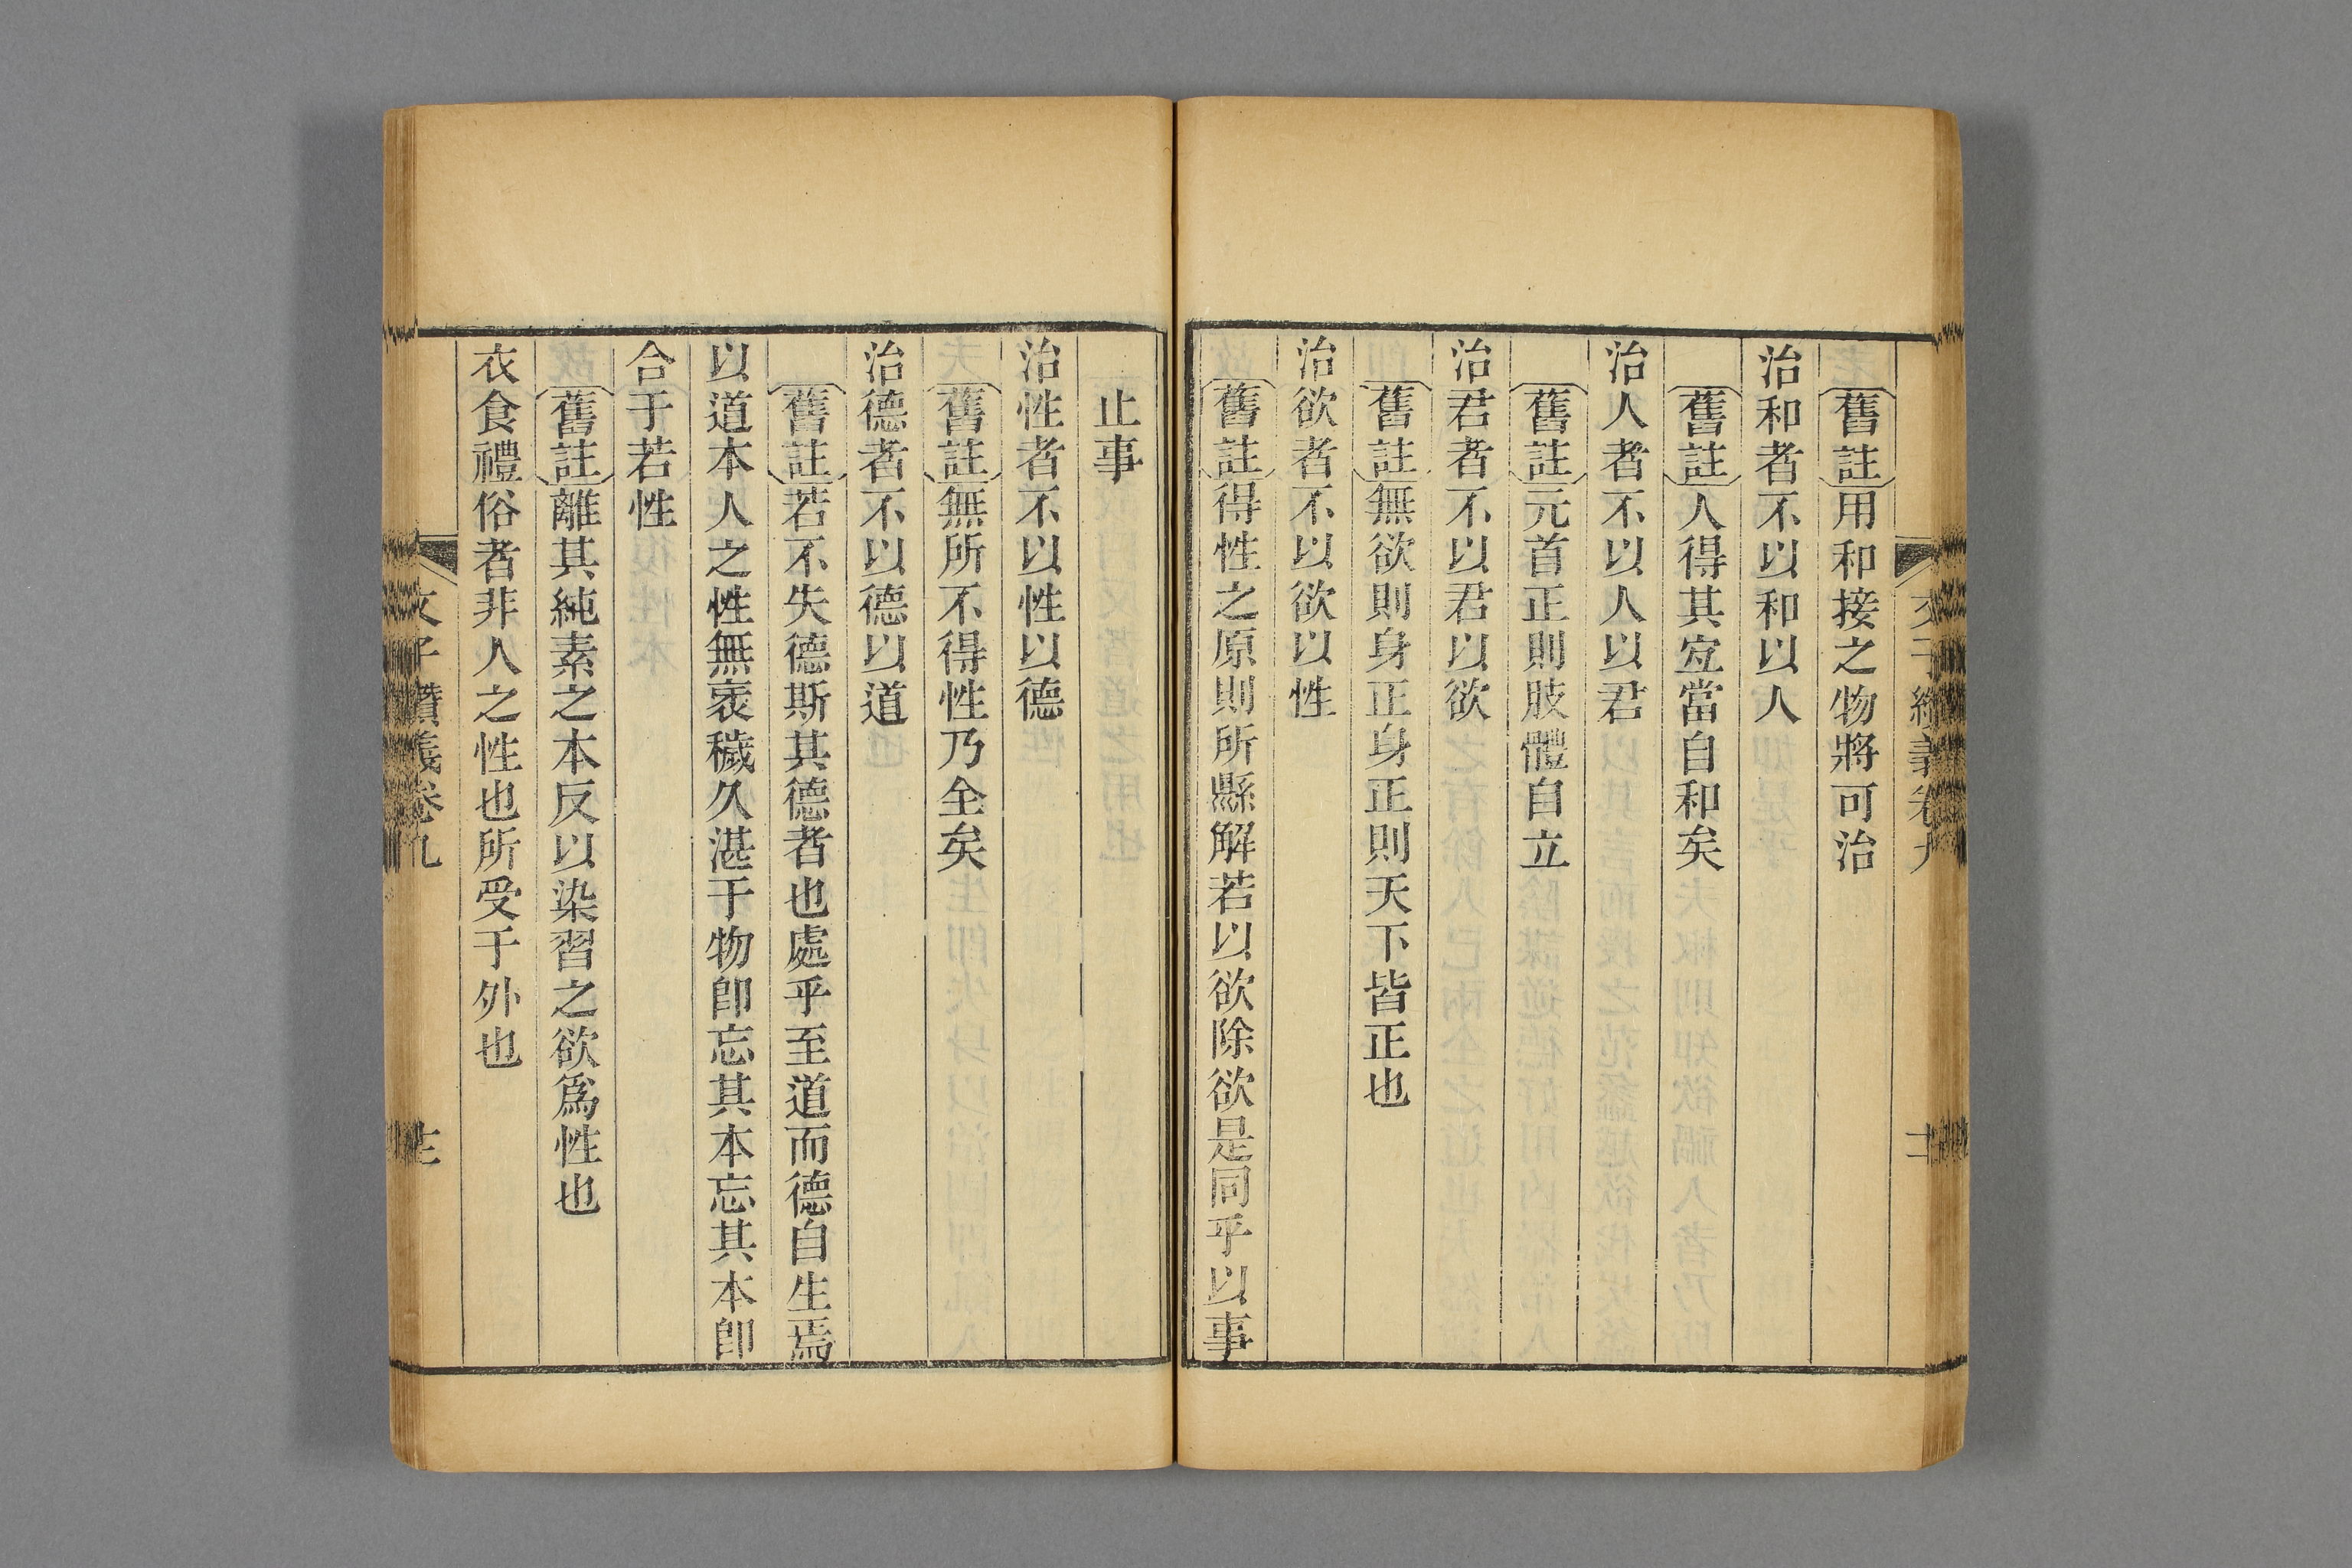 舊註用和接之物將可治
治和者不以和以人
舊註人得其宐當自和矣
治人者不以人以君
舊註元首正則肢體自立
治君者不以君以欲
舊註無欲則身正身正則天下皆正也
治欲者不以欲以性
舊註得性之原則所縣解若以欲除欲是同乎以事
止事
治性者不以性以德
舊註無所不得性乃全矣
治德者不以德以道
舊註若不失德斯其德者也處乎至道而德自生焉
以道本人之性無衺穢久湛于物卽忘其本忘其本卽
合于若性
舊註離其純素之本反以染習之欲爲性也
衣食禮俗者非人之性也所受于外也
文子纘義卷九